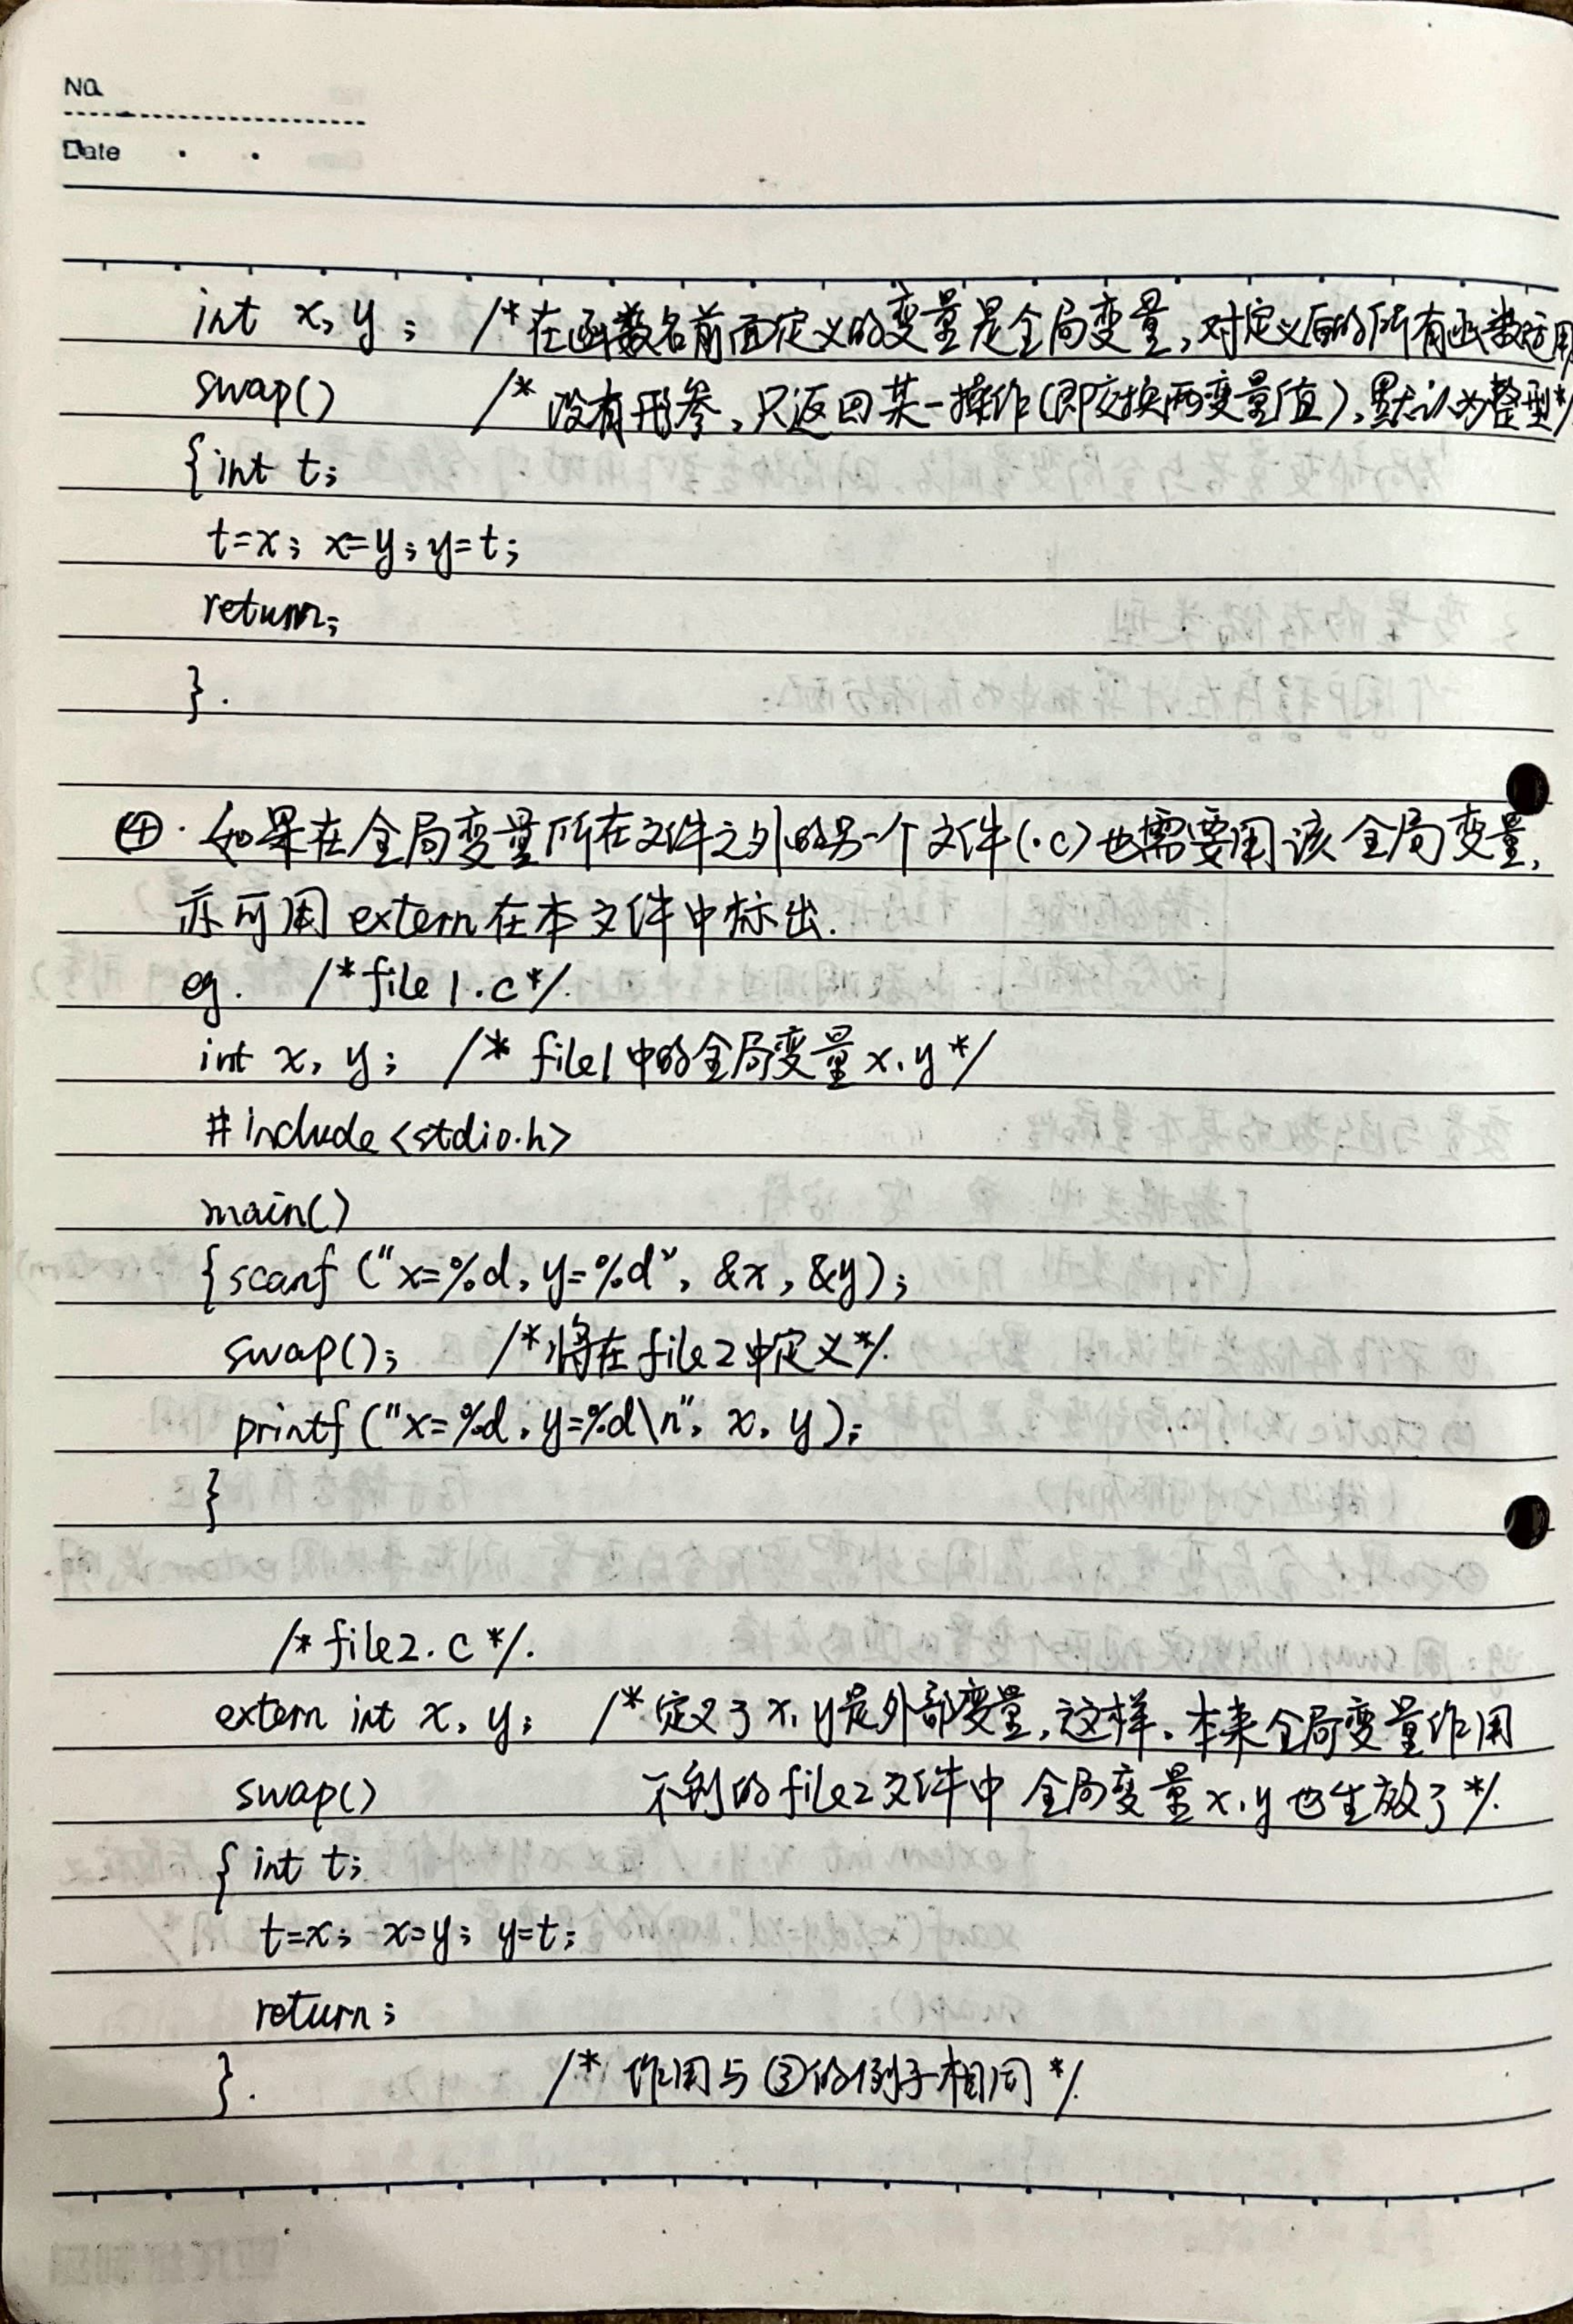 No.
Date . .
int x, y; /*在函数名前面定义的变量是全局变量,对定义后的所有函数适用
swap() /* 没有形参,只返回某一操作(即交换两变量值),默认为整型*/
{int t;
t=x; x=y; y=t;
return;
}.
④. 如果在全局变量所在文件之外的另一个文件(.c)也需要用该全局变量,
亦可用 extern在本文件中标出.
eg. /*file 1.c*/.
int x, y; /* file1中的全局变量x、y*/
#include<stdio.h>
main()
{scanf ("x=%d, y=%d", &x, &y);
swap(); /*将在file2中定义*/.
printf ("x=%d, y=%d\n", x, y);
}
/*file2.c*/.
extern int x, y; /*定义了x、y是外部变量,这样、本来全局变量作用
swap() 不到的file2文件中 全局变量x、y也生放了*/.
{ int t;
t=x; x=y; y=t;
return;
}. /* 作用与③的例子相同*/.